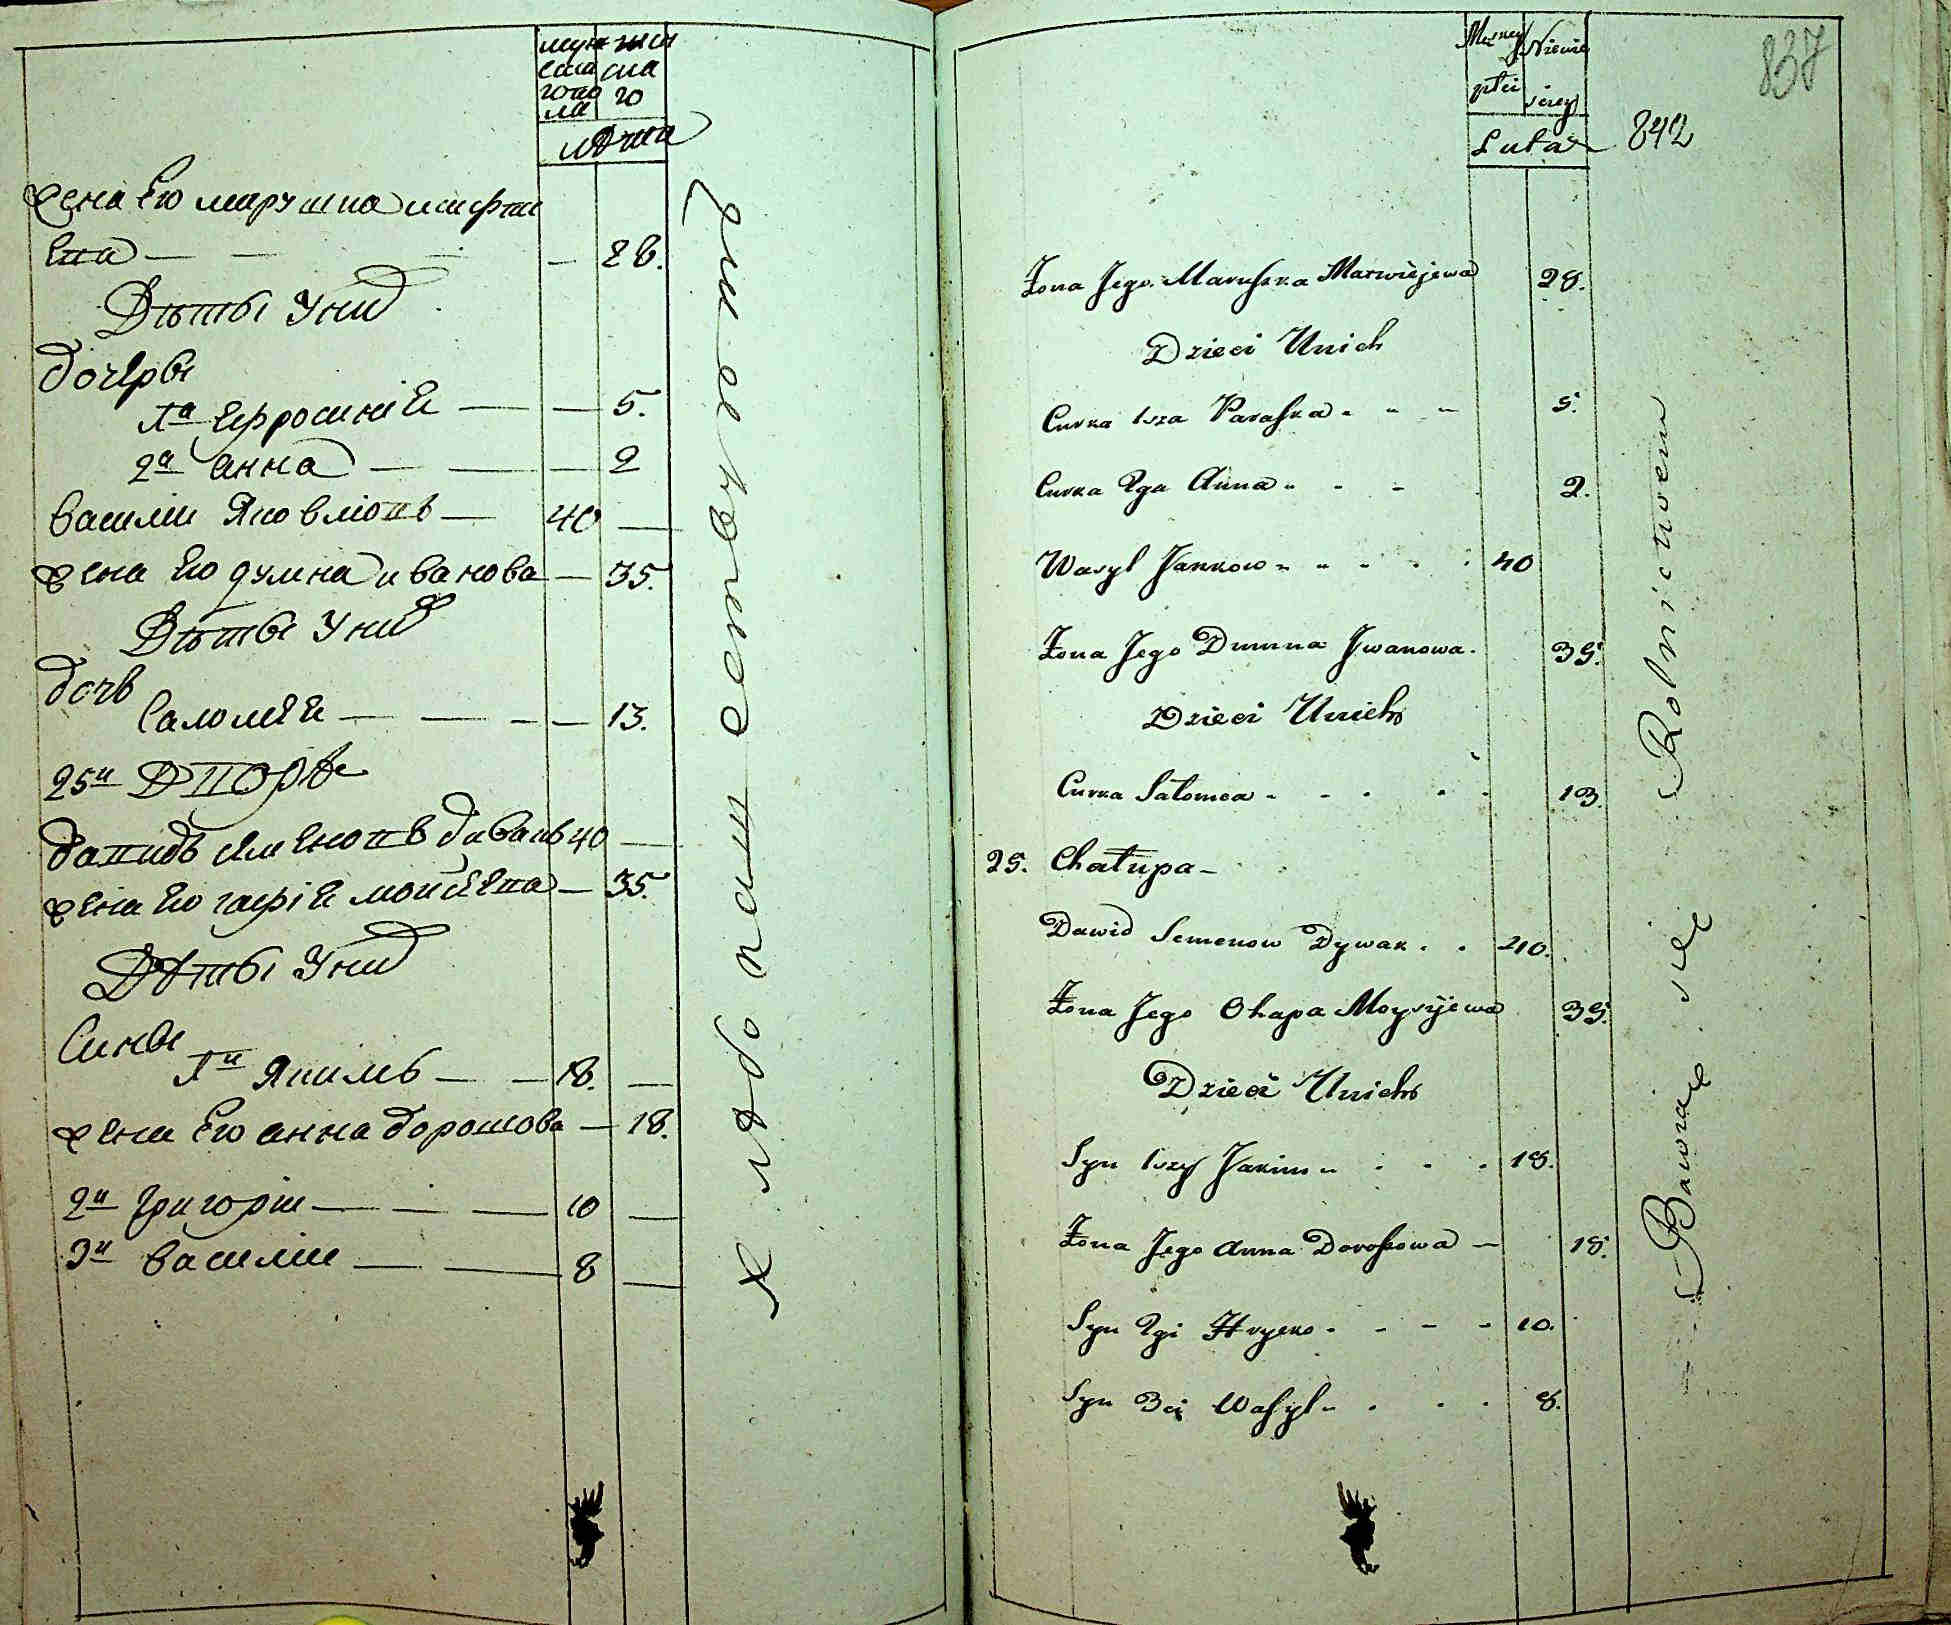 муже
ска
го по
ла
женска
го
лѣта
жена Его марушка матфе
Ева — 28.
Дѣты У них
дочеры
1а Ефросиніе — 5.
2а Анна — 2
Василіи Яковлювъ — 40 —
жена Его думна иванова — 35.
Дѣты У них
дочь
Саломее — 13.
25и Дворъ
давидъ семеновъ дивакъ 40 —
жена Его гафіе мойсеева — 35.
Дѣты У них
Сины
1и Якимъ — 18. —
жена Его анна дорошова — 18.
2и Григоріи — 10 —
3и василіи — 8 —
хлѣбопашеством
837
842
Męzkiey
płci
Niewie
sciey
Lata
Żona Jego Maruszka Matwiejewa 28.
Dzieci Unich
Curka 1sza Paraska 5.
Curka 2ga Anna 2.
Wasyl Jankow 40
Żona Jego Dumna Jwanowa 35.
Dzieci Unich
Curka Salomea 13.
25. Chałupa
Dawid Semenow Dywak 40.
Żona Jego Ohapa Moysijewa 35.
Dzieci Unich
Syn 1szy Jakim 18.
Żona Jego Anna Doroszowa — 18.
Syn 2gi Hryсko 10.
Syn 3ci Wasyl 8.
Bawią się Rolnictwem